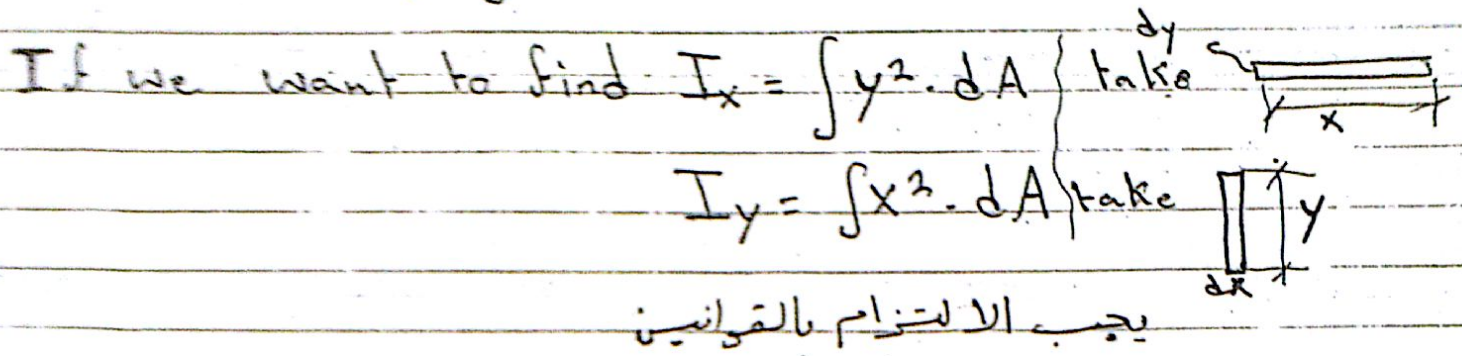 If we want to find Ix = ∫y². dA } take dy x
Iy = ∫x². dA take y dx
يجب الالتزام بالقوانين